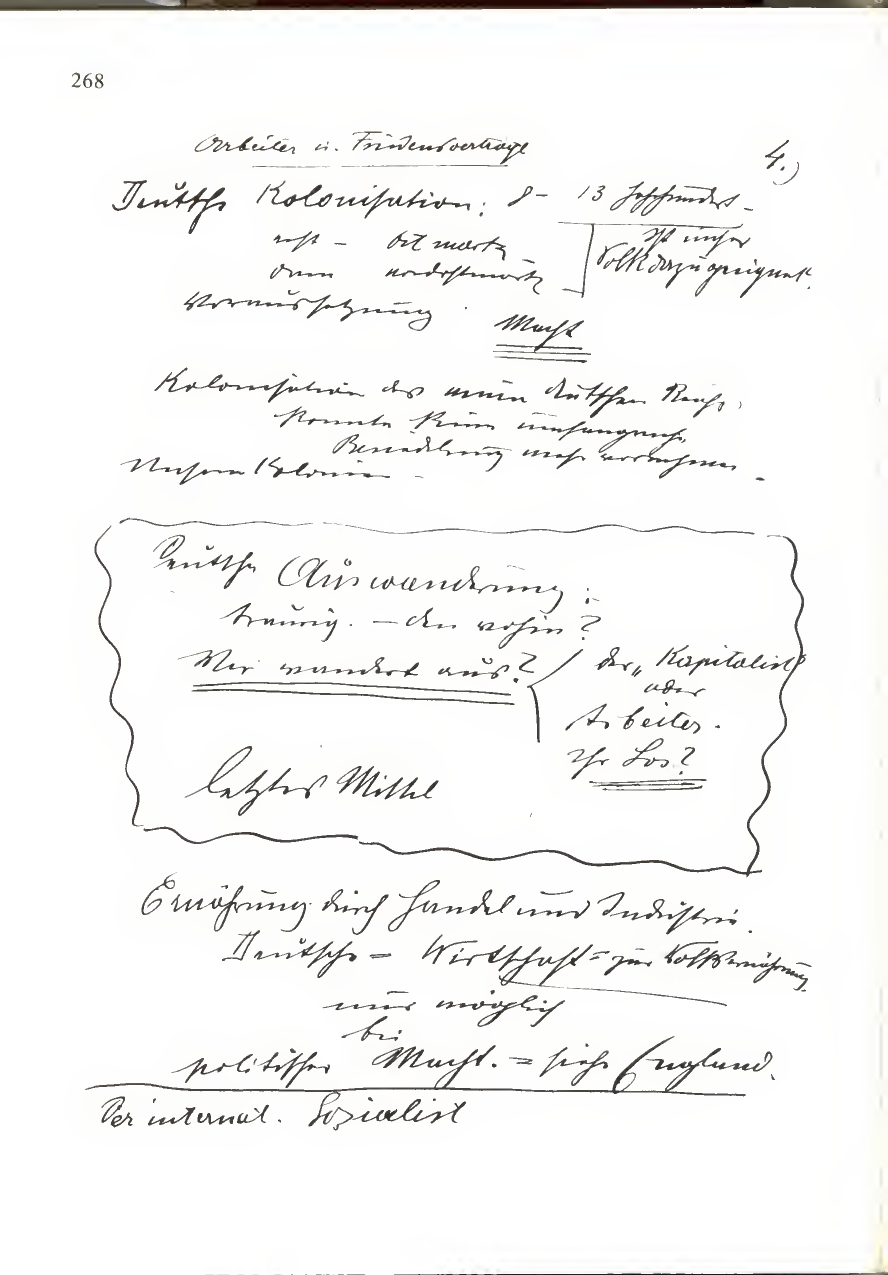 268
Arbeiter u. Friedensverträge
4.)
Deutsche Kolonisation: 8 – 13 Jahrhundert –
erst – Ostmark –
dann nordostmark
Ist unser
Volk dazu geeignet.
Voraussetzung.
Macht
Kolonisation des neuen deutschen Reichs.
konnte keine umfangreiche
Besiedelung mehr vornehmen
Unsere Kolonien –
Deutsche Auswanderung:
traurig. – den wohin?
Wer wandert aus?
der „Kapitalist“
oder
Arbeiter.
Ihr Los?
letztes Mittel
Ernährung durch Handel und Industrie.
Deutsche = Wirtschaft = zur Volksernährung
nur möglich
bei
politischer Macht. = siehe England.
Der internat. Sozialist